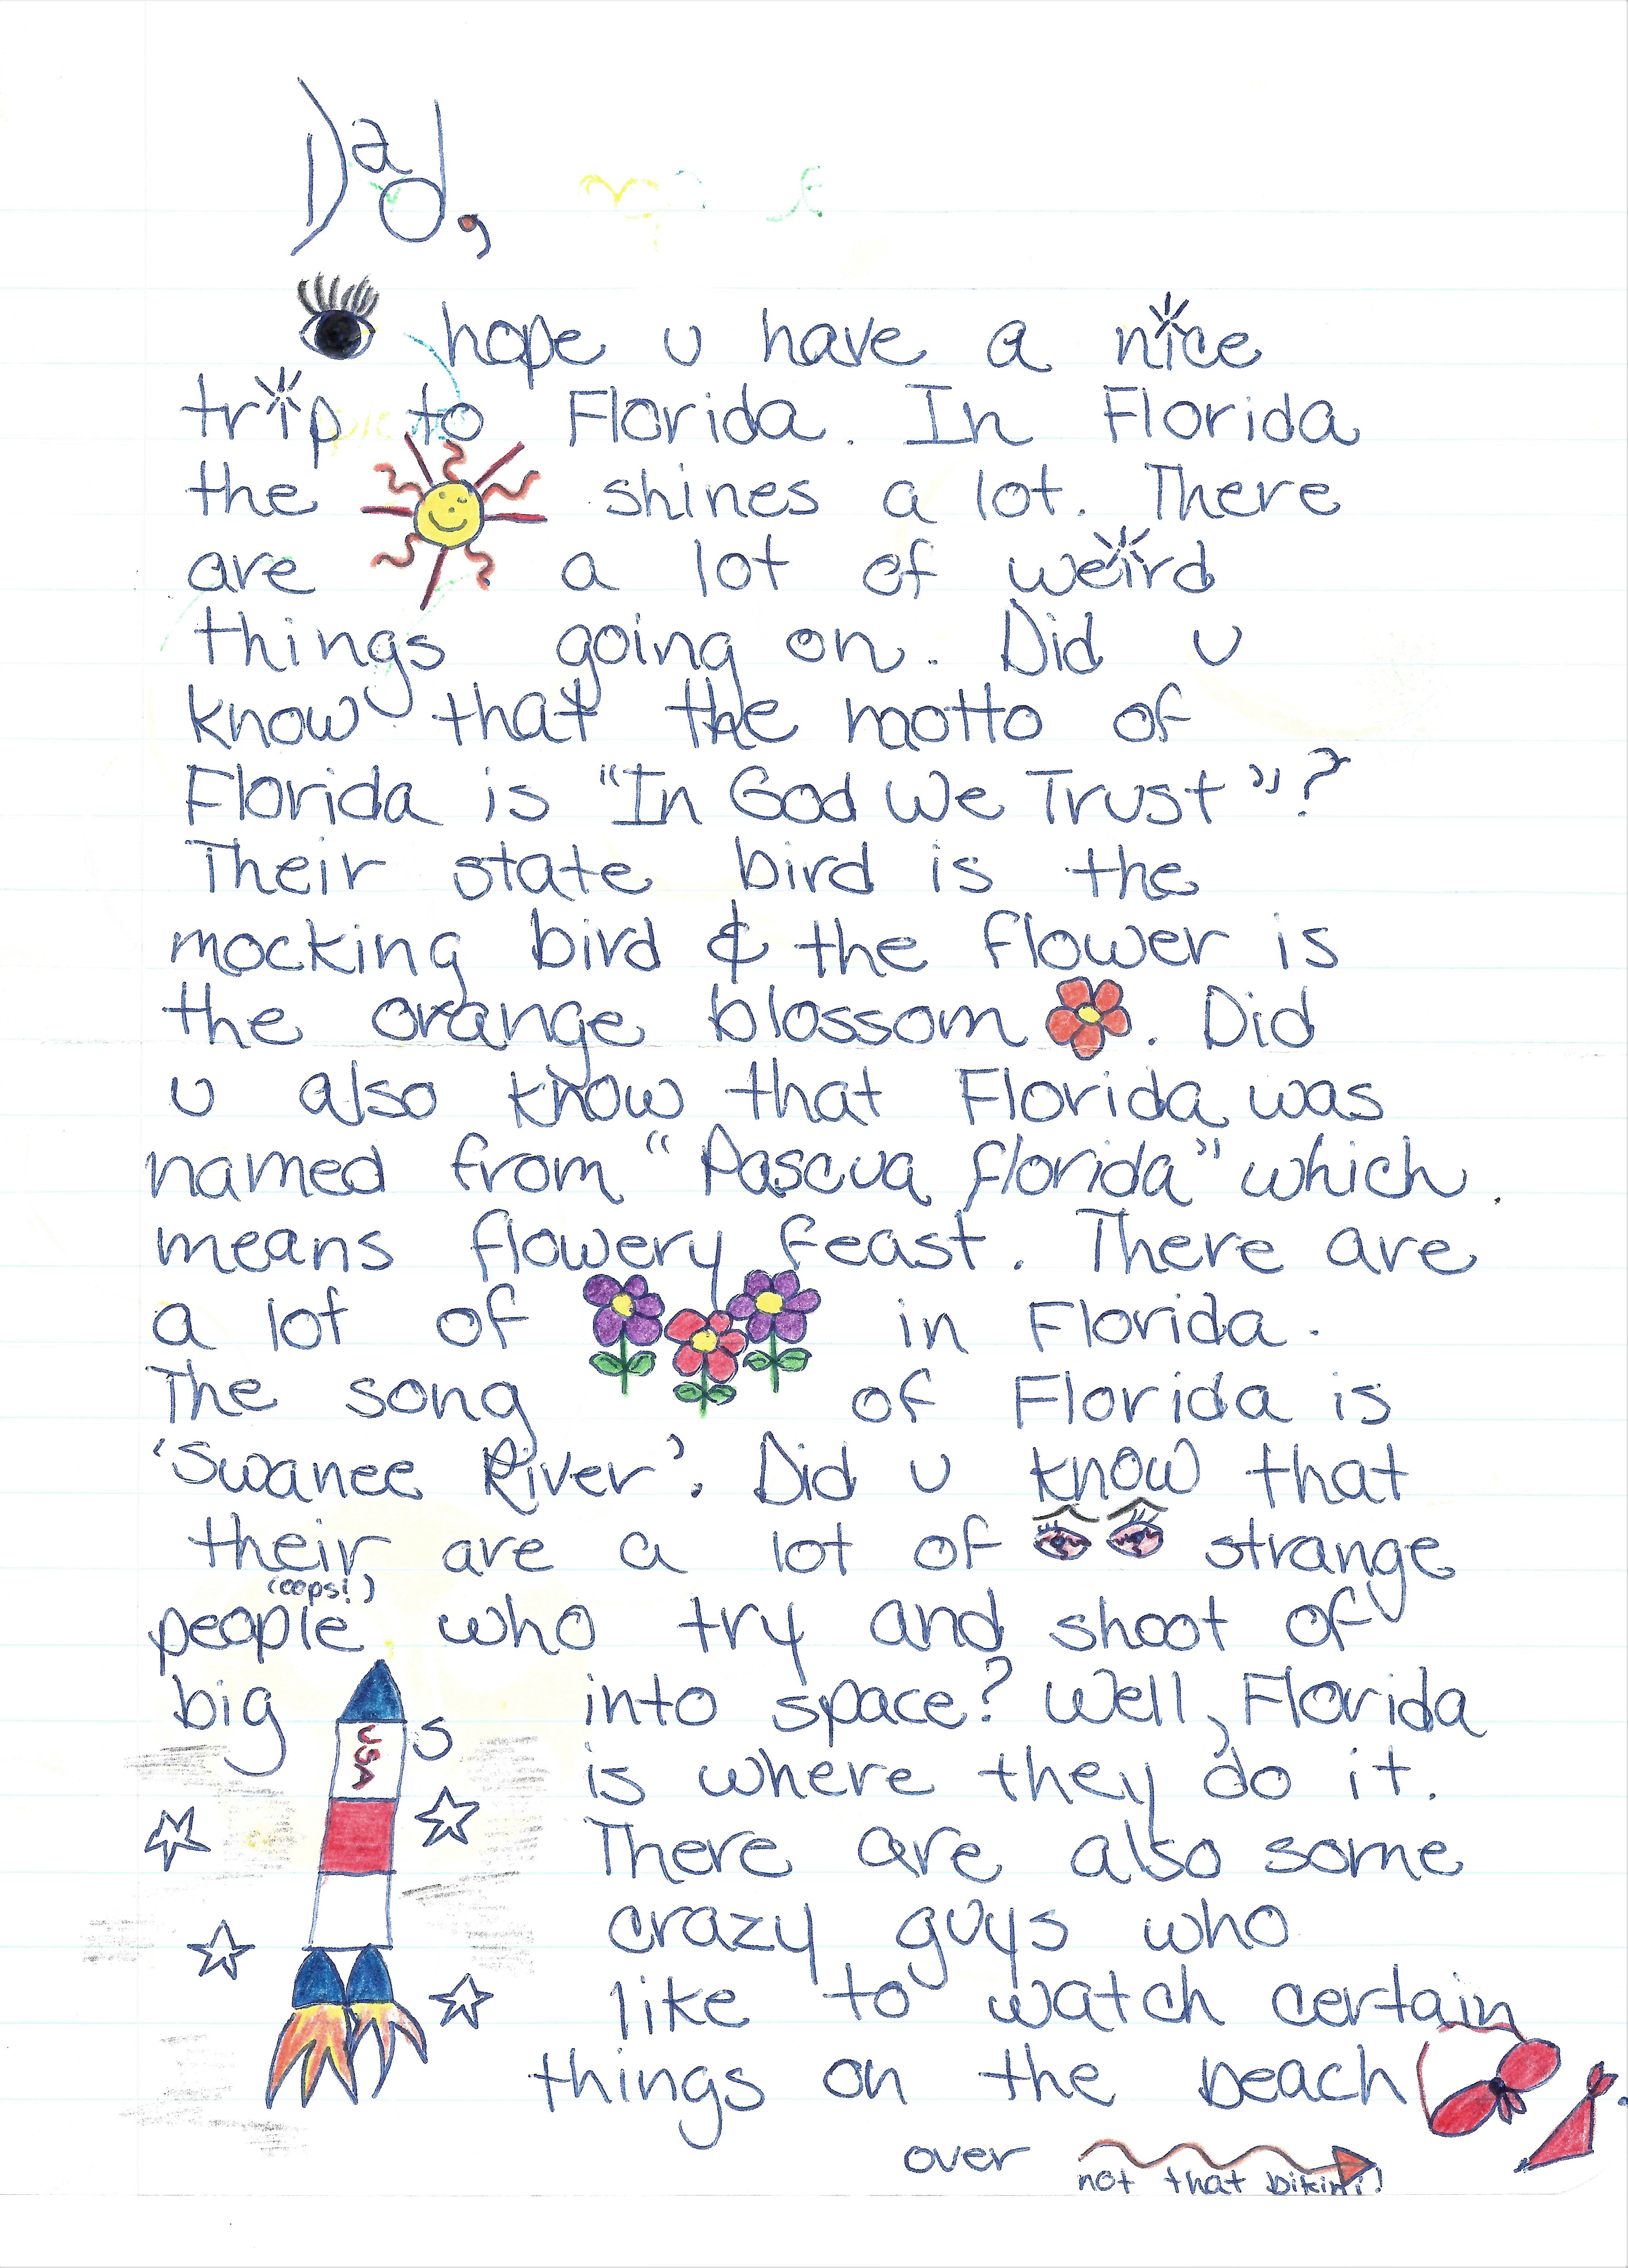 Dad,
hope u have a nice
trip to Florida. In Florida
the shines a lot. There
are a lot of weird
things going on. Did u
know that the motto of
Florida is "In God We Trust"?
Their state bird is the
mocking bird & the flower is
the orange blossom. Did
u also know that Florida was
named from "Pascua florida" which
means flowery feast. There are
a lot of in Florida.
The song of Florida is
'Swanee River'. Did u know that
their are a lot of strange
(oops!)
people who try and shoot of
big s into space? Well, Florida
USA
is where they do it.
There are also some
crazy guys who
like to watch certain
things on the beach.
over
not that bikini!